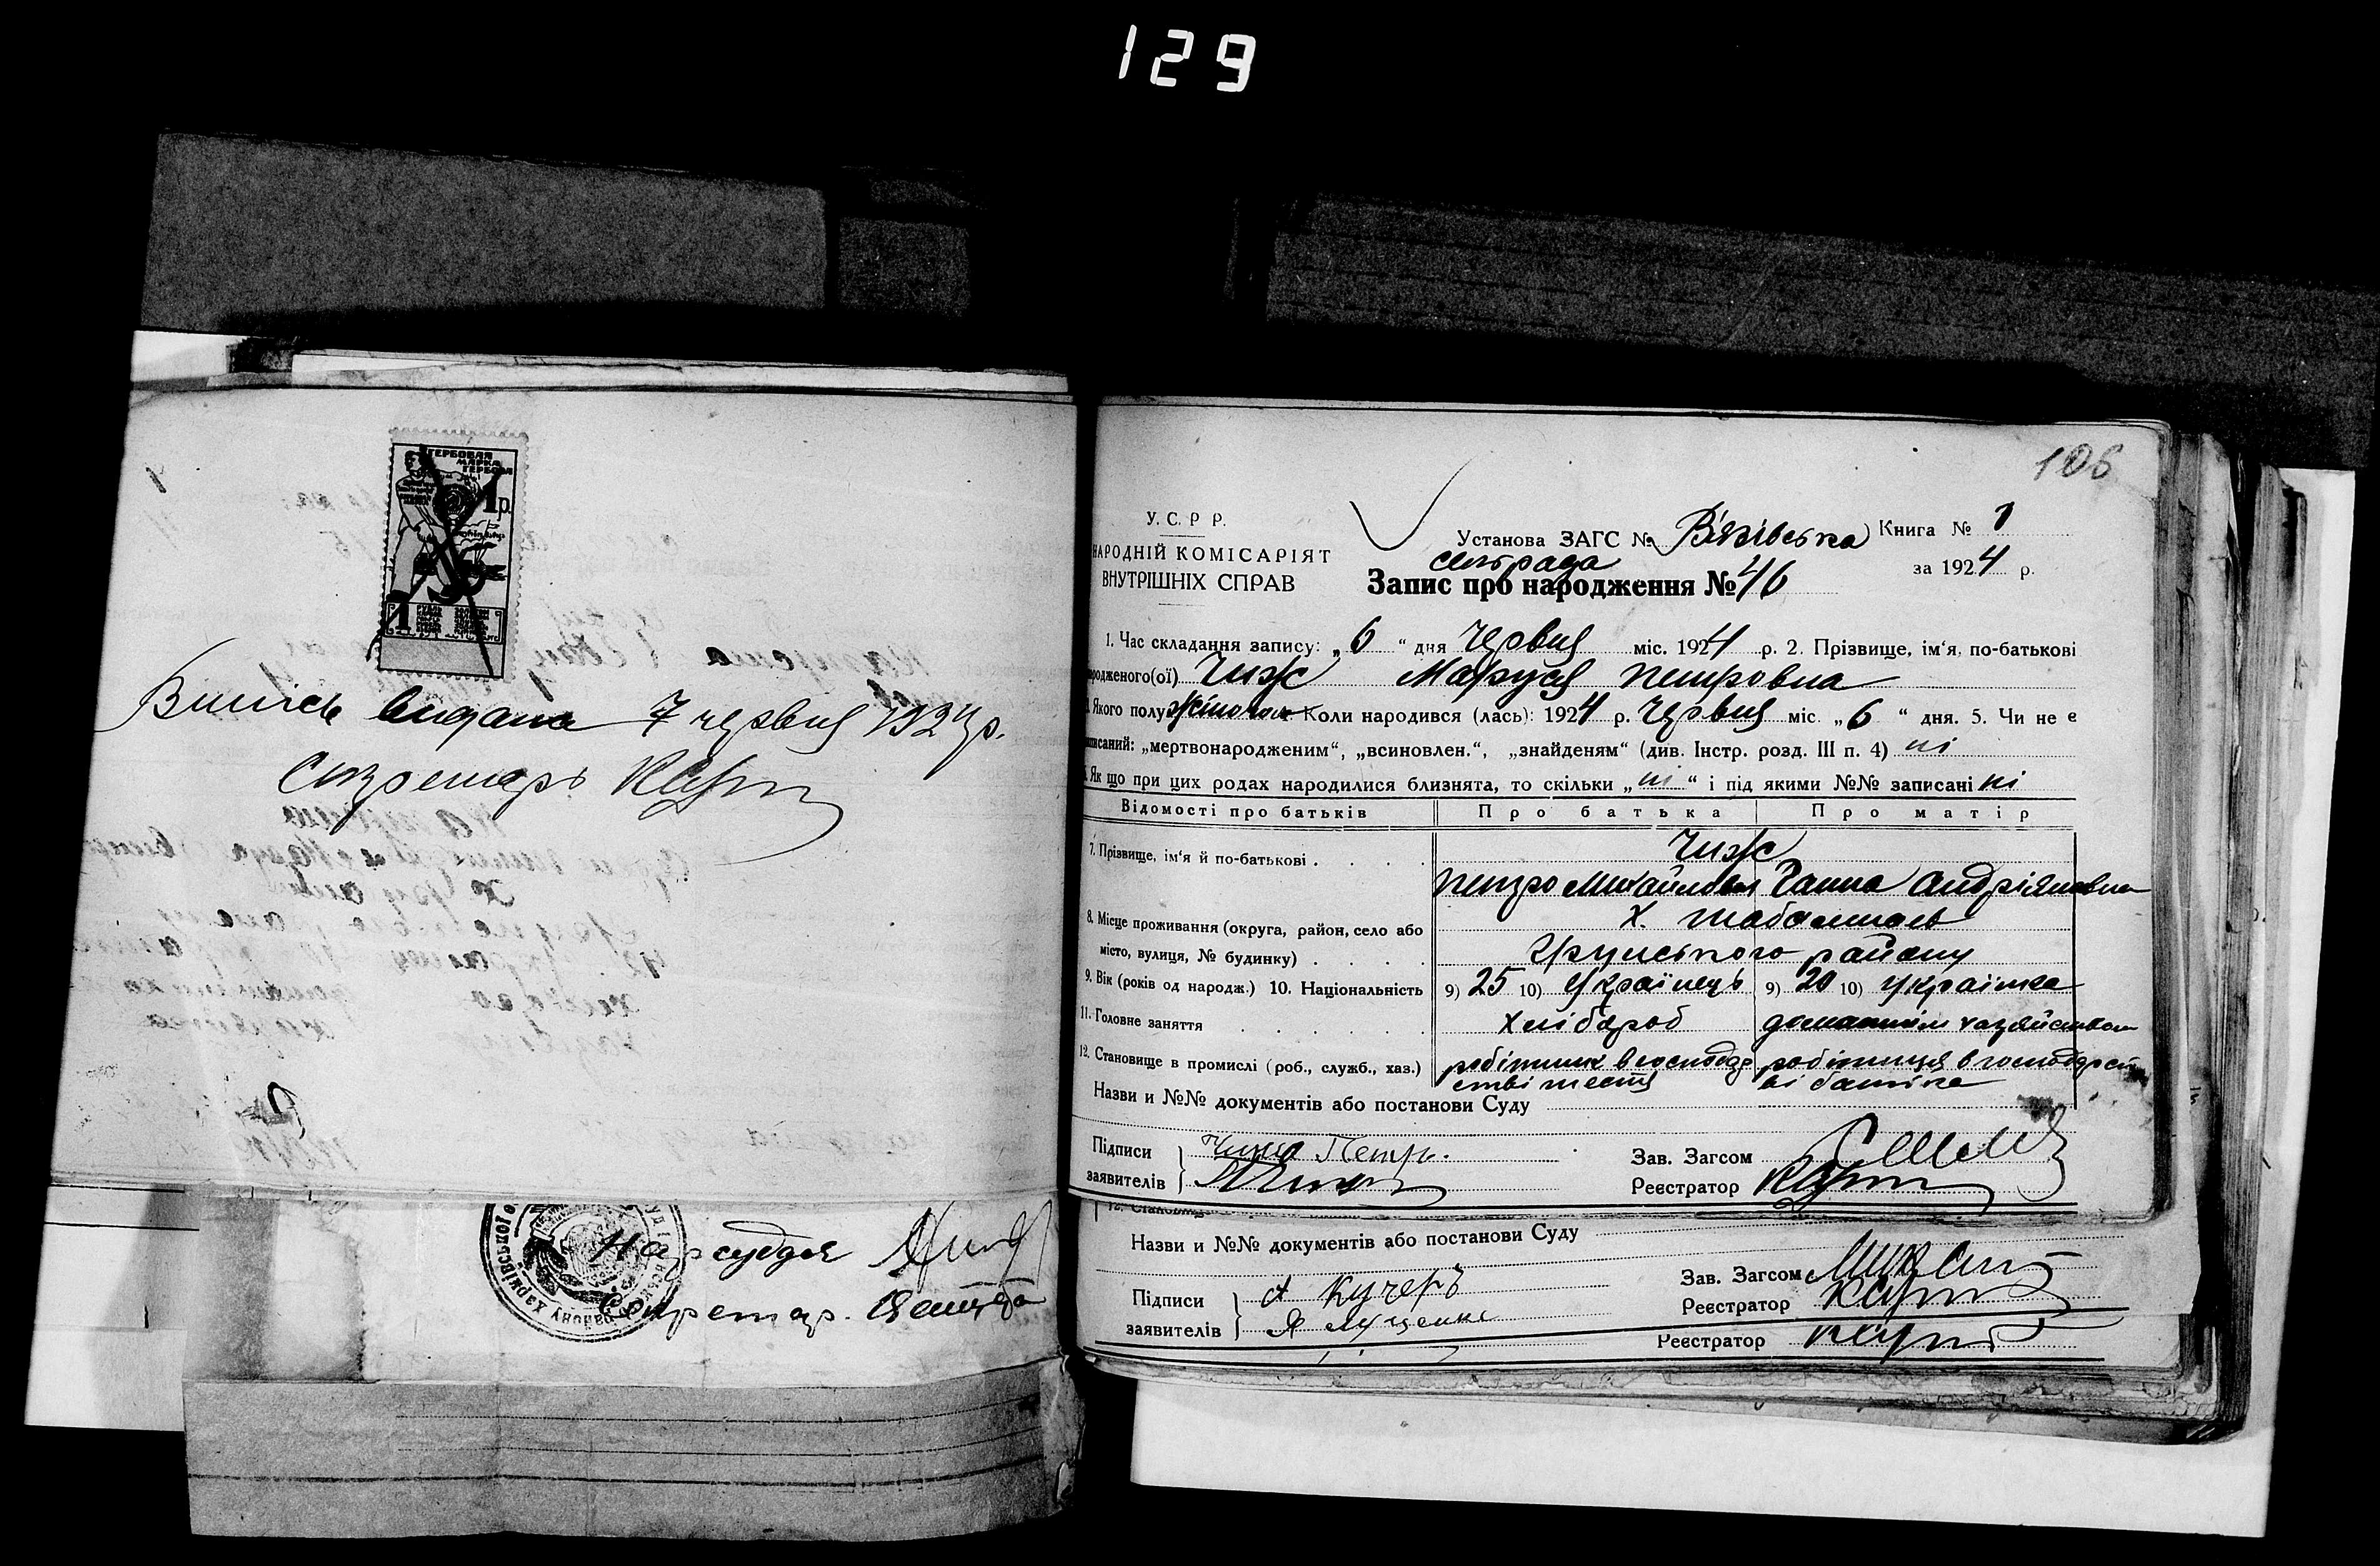 129
ГЕРБОВАЯ
МАРКА
1 р.
1
Випісь видана 7 червня 1924 р.
Секретарь
Нарсуддя
Секретар.
106
У. С. Р Р.
НАРОДНІЙ КОМІСАРІЯТ
ВНУТРІШНІХ СПРАВ
Установа ЗАГС № Вязівська Книга № 1
сільрада
за 1924 р.
Запис про народження № 46
1. Час складання запису: „ 6 “ дня червня міс. 1924 р. 2. Прізвище, ім‘я, по-батькові
родженого(ої) Чиж Маруся Петровна
Якого полу жіночого Коли народився (лась): 1924 р. червня міс. „ 6 “ дня. 5. Чи не є
писаний: „мертвонародженим“, „всиновлен.“, „знайденям“ (див. Інстр. розд. III п. 4) ні
Як що при цих родах народилися близнята, то скільки „ ні “ і під якими №№ записані ні
Відомості про батьків Про батька Про матір
7. Прізвище, ім‘я й по-батькові . . . . Чиж
Петро Михайлович Ганна Андріяновна
8. Місце проживання (округа, район, село або х.
місто, вулиця, № будинку) . . . . Грунського району
9. Вік (років од народж.) 10. Національність 9) 25 10) Українець 9) 20 10) Українка
11. Головне заняття . . . . . Хлібороб домашнім хазяйством
12. Становище в промислі (роб., служб., хаз.) робітник в господар робітниця в господарст
стві тестя ві батька
Назви и №№ документів або постанови Суду
Підписи Чижа Петр.
заявителів
Зав. Загсом
Реєстратор
Назви и №№ документів або постанови Суду
Підписи А Кучеръ
заявителів Я Луценко
Зав. Загсом
Реєстратор
Реєстратор